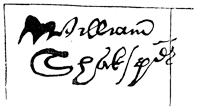 William
Shakspēr